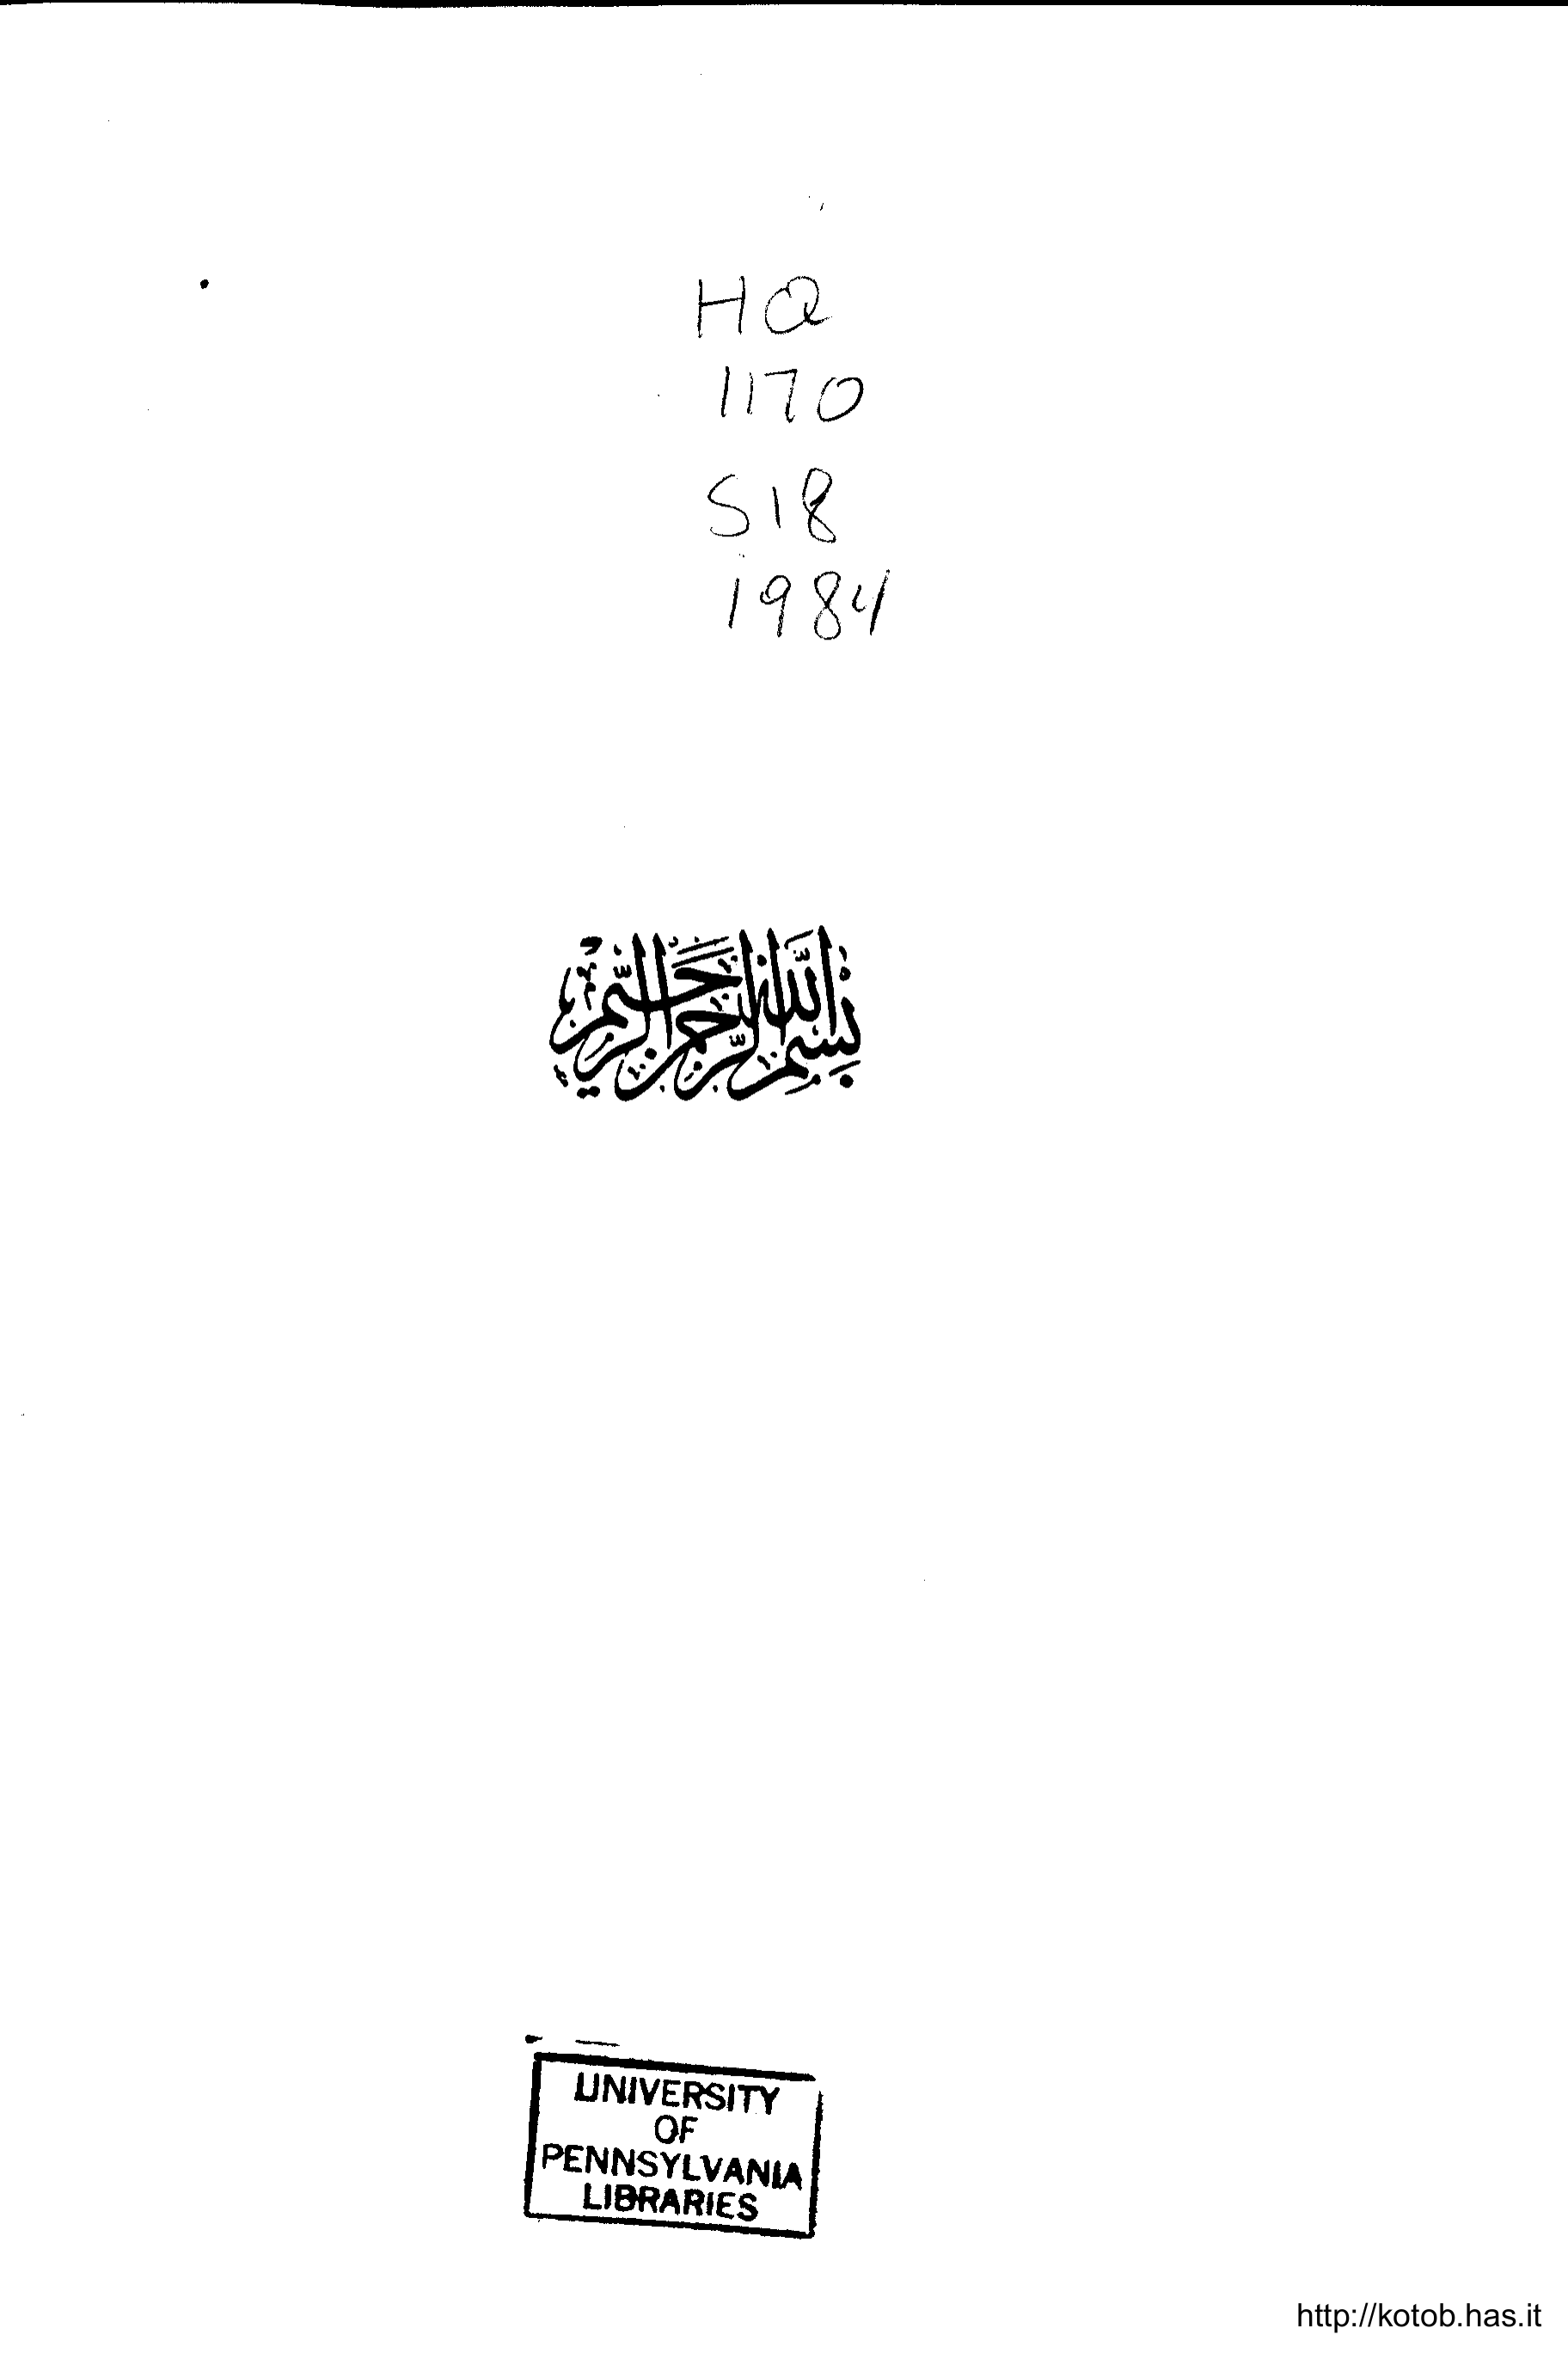 HQ
1170
S18
1984
بسم الله الرحمن الرحيم
UNIVERSITY
OF
PENNSYLVANIA
LIBRARIES
http://kotob.has.it